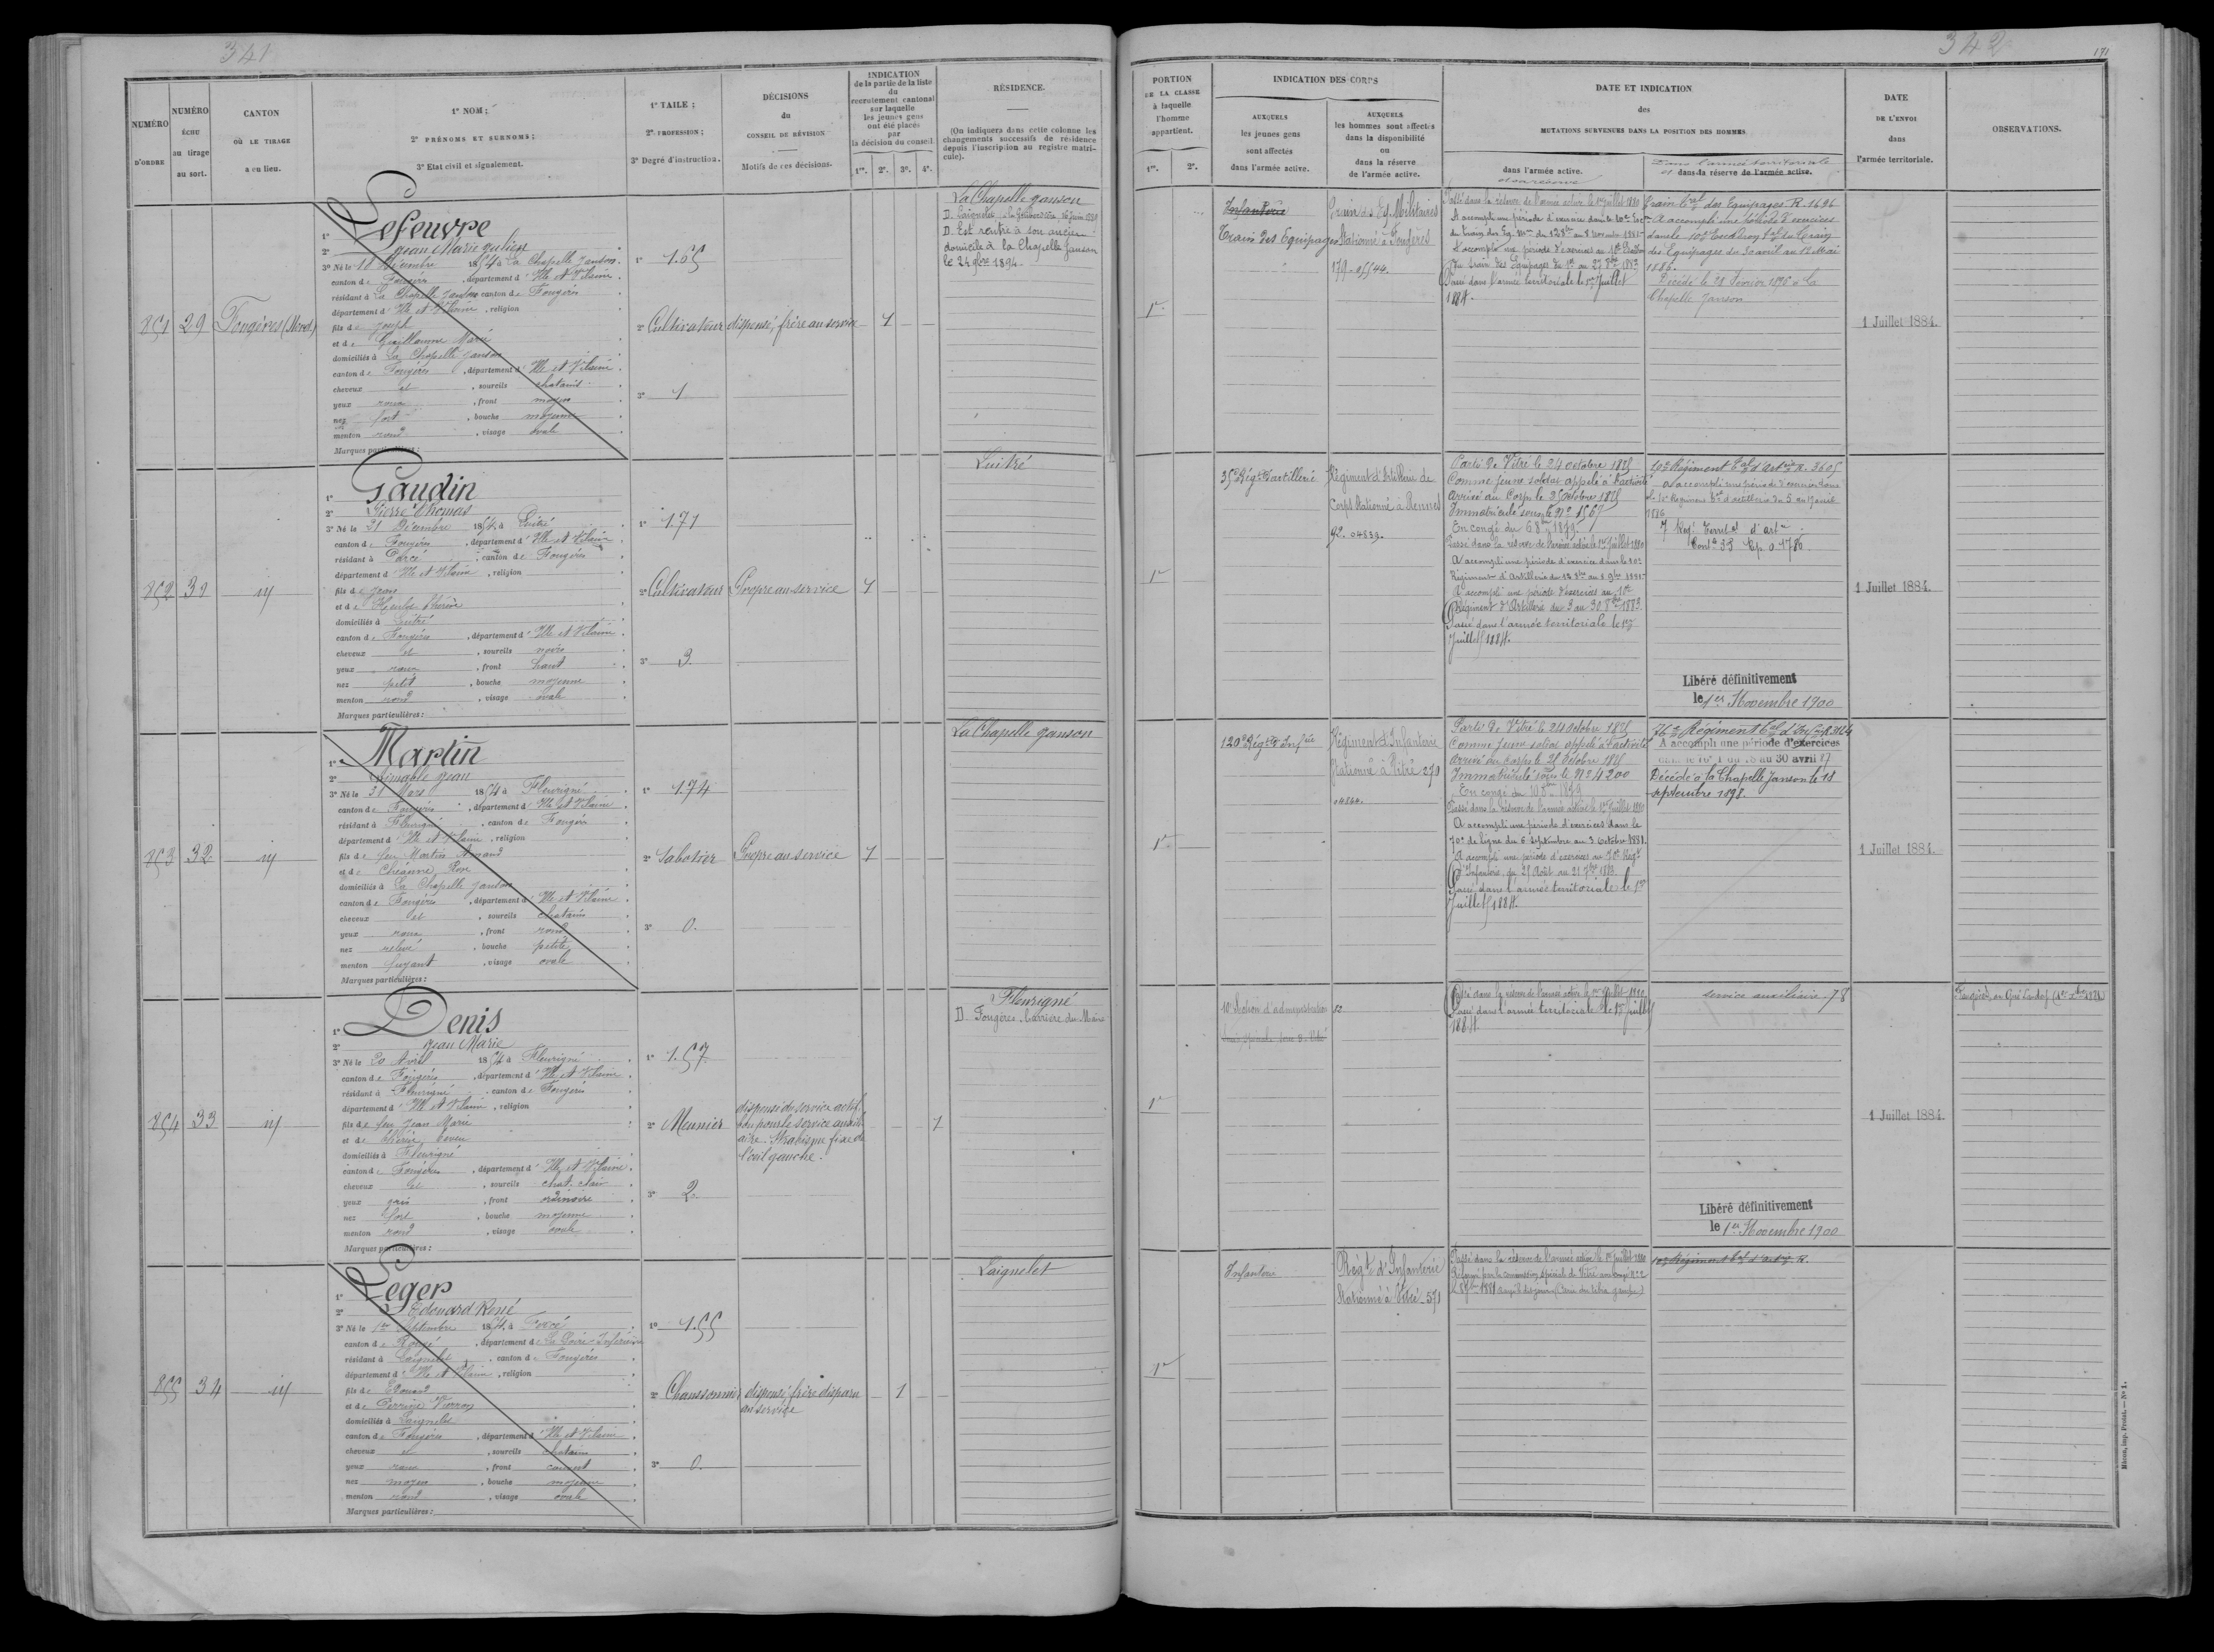 341
NUMÉRO
D'ORDRE
NUMÉRO
ÉCHU
au tirage
au sort.
CANTON
OÙ LE TIRAGE
a eu lieu.
1° NOM ;
2° PRÉNOMS ET SURNOMS ;
3° Etat civil et signalement.
1° TAILE ;
2° PROFESSION ;
3° Degré d'instruction.
DÉCISIONS
du
CONSEIL DE RÉVISION
Motifs de ces décisions.
INDICATION
de la partie de la liste
du
recrutement cantonal
sur laquelle
les jeunes gens
ont été placés
par
la décision du conseil
1re. 2e. 3e. 4e.
RÉSIDENCE.
(On indiquera dans cette colonne les
changements successifs de résidence
depuis l'inscription au registre matri-
cule).
851 29 Fougères (Nord)
1° Lefeuvre
2° Jean Marie Julien
3° Né le 18 Décembre 1854 à La Chapelle Janson.
canton de Fougères, département d'Ille et Vilaine.
résidant à La Chapelle Janson canton de Fougères
département d'Ille et Vilaine, religion
fils de Joseph
et de Guillaume Marie
domiciliés à La Chapelle Janson
canton de Fougères, département d'Ille et Vilaine.
cheveux et, sourcils chatains.
yeux roux, front moyen
nez fort, bouche moyenne
menton rond, visage ovale
Marques particulières :
1° 1.65
2° Cultivateur
3° 1
dispensé, frère au service
1
La Chapelle Janson
D. Est rentré à son ancien
domicile à la Chapelle Janson
le 24 9bre 1894.
852 31 id
1° Gaudin
2° Pierre Thomas
3° Né le 31 Décembre 1854, à Luitré
canton de Fougères, département d'Ille et Vilaine.
résidant à Parcé, canton de Fougères
département d'Ille et Vilaine, religion
fils de Jean
et de Thérèse
domiciliés à Luitré
canton de Fougères, département d'Ille et Vilaine.
cheveux et, sourcils noirs
yeux roux, front haut
nez petit, bouche moyenne
menton rond, visage ovale
Marques particulières :
1° 1.71
2° Cultivateur
3° 3.
Propre au service
1
Luitré
853 32 id
1° Martin
2° Aimable Jean
3° Né le 31 Mars 1854 à Fleurigné
canton de Fougères, département d'Ille et Vilaine.
résidant à Fleurigné, canton de Fougères
département d'Ille et Vilaine, religion
fils de feu Martin Armand
et de Rose
domiciliés à La Chapelle Janson
canton de Fougères, département d'Ille et Vilaine.
cheveux et, sourcils chatains
yeux roux, front rond
nez relevé, bouche petite
menton fuyant, visage ovale
Marques particulières :
1° 1.74
2° Sabotier
3° 0.
Propre au service
1
La Chapelle Janson
854 33 id
1° Denis
2° Jean Marie
3° Né le 20 Avril 1854 à Fleurigné
canton de Fougères, département d'Ille et Vilaine.
résidant à Fleurigné, canton de Fougères
département d'Ille et Vilaine, religion
fils de feu Jean Marie
domiciliés à Fleurigné
canton de Fougères, département d'Ille et Vilaine.
cheveux et, sourcils chat. clair
yeux gris, front ordinaire
nez fort, bouche moyenne
menton rond, visage ovale
Marques particulières :
1° 1.57
2° Meunier
3° 2.
dispensé du service actif.
bon pour le service auxili-
aire. Strabisme fixe de
l'œil gauche.
1
Fleurigné
D. Fougères, derrière du Maine
855 34 id
1° Leger
2° Edouard René
3° Né le 1er Septembre 1854, à Fercé
canton de Rougé, département de La Loire-Inférieure
résidant à Laignelet, canton de Fougères
département d'Ille et Vilaine, religion
fils de Edouard
et de Perrine Vierron
domiciliés à Laignelet
canton de Fougères, département d'Ille et Vilaine.
cheveux et, sourcils chatains
yeux roux, front couvert
nez moyen, bouche moyenne
menton rond, visage ovale
Marques particulières :
1° 1.55
2° Chaussonnier
3° 0.
dispensé, frère disparu
au service
1
Laignelet
342
171
PORTION
DE LA CLASSE
à laquelle
l'homme
appartient.
1re. 2e.
INDICATION DES CORPS
AUXQUELS
les jeunes gens
sont affectés
dans l'armée active.
AUXQUELS
les hommes sont affectés
dans la disponibilité
ou
dans la réserve
de l'armée active.
DATE ET INDICATION
des
MUTATIONS SURVENUES DANS LA POSITION DES HOMMES
dans l'armée active.
et sa réserve
Dans l'armée territoriale
et dans la réserve de l'armée active.
DATE
DE L'ENVOI
dans
l'armée territoriale.
OBSERVATIONS.
1re
Infanterie
Train des Equipages
Train des Eq. Militaires
Stationné à Fougères
179 - 25544.
Passé dans la réserve de l'armée active le 1er juillet 1880
A accompli une période d'exercice dans le 10e Esc.on
du train des Eq. Mres du 12 8bre au 8 novembre 1881.
A accompli une période d'exercices au 10e Escadron
du train des Equipages du 1er au 27 8bre 1883
Passé dans l'armée territoriale le 1er Juillet
1884.
Train Eral des Equipages R. 1696
A accompli une période d'exercices
dans le 10e Escadron Eal du Train
des Equipages du 30 avril au 12 Mai
1886.
Décédé le 28 Février 1896 à La
Chapelle Janson
1 Juillet 1884.
1re
35e Régt d'artillerie
Régiment d'Artillerie de
Corps Stationné à Rennes
92. 04839.
Parti de Vitré le 24 octobre 1875
Comme jeune soldat appelé à l'activité
Arrivé au Corps le 25 octobre 1875
Immatriculé sous le N° 1567
En congé du 6 8bre 1879
Passé dans la réserve de l'armée active le 1er Juillet 1880
A accompli une période d'exercice dans le 10e
Régiment d'Artillerie du 12 8bre au 8 9bre 1881
A accompli une période d'exercices au 10e
Régiment d'Artillerie du 3 au 30 8bre 1883.
Passé dans l'armée territoriale le 1er
Juillet 1884.
10e Régiment Eal d'Artrie R. 3605
A accompli une période d'exercice dans
le 10e Régiment Eal d'artillerie du 5 au 17 avril
1886
7 Régt Territal d'artie
Libéré définitivement
le 1er Novembre 1900
1 Juillet 1884.
1re
120e Régt d'Infrie
Régiment d'Infanterie
Stationné à Vitré 270
04844.
Parti de Vitré le 24 octobre 1875
Comme jeune soldat appelé à l'activité
Arrivé au corps le 28 octobre 1875
Immatriculé sous le N° 4200
En congé du 10 8bre 1879
Passé dans la réserve de l'armée active le 1er Juillet 1880
A accompli une période d'exercices dans le
70e de ligne du 6 septembre au 3 octobre 1881.
A accompli une période d'exercices au 70e Régt
d'Infanterie, du 25 Août au 21 7bre 1883.
Passé dans l'armée territoriale le 1er
Juillet 1884.
76e Régiment Eal d'Infrie
A accompli une période d'exercices
au 30 avril 87
Décédé à la Chapelle Janson le 18
septembre 1898.
1 Juillet 1884.
1re
10e Section d'administration
Passé dans la réserve de l'armée active le 1er Juillet 1880
Passé dans l'armée territoriale le 1er Juillet
1884.
service auxiliaire 78
Libéré définitivement
le 1er Novembre 1900
1 Juillet 1884.
1re
Infanterie
Régt d'Infanterie
Stationné à Vitré 571
Passé dans la réserve de l'armée active le 1er Juillet 1880
Réformé par la commission spéciale de Vitré
10e Régiment Eal d'artie R.
Mâcon, imp. Protat. — N° 1.